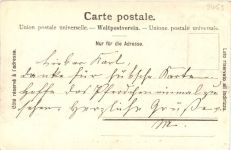 Carte postale.
Union postale universelle. — Weltpostverein. — Unione postale universale.
Nur für die Adresse.
Côté réservé à l'adresse.
Lato riservato all'indirizzo.
Lieber Karl.
Danke für hübsche Karten
hoffe das
schon. Herzliche Grüße
M.